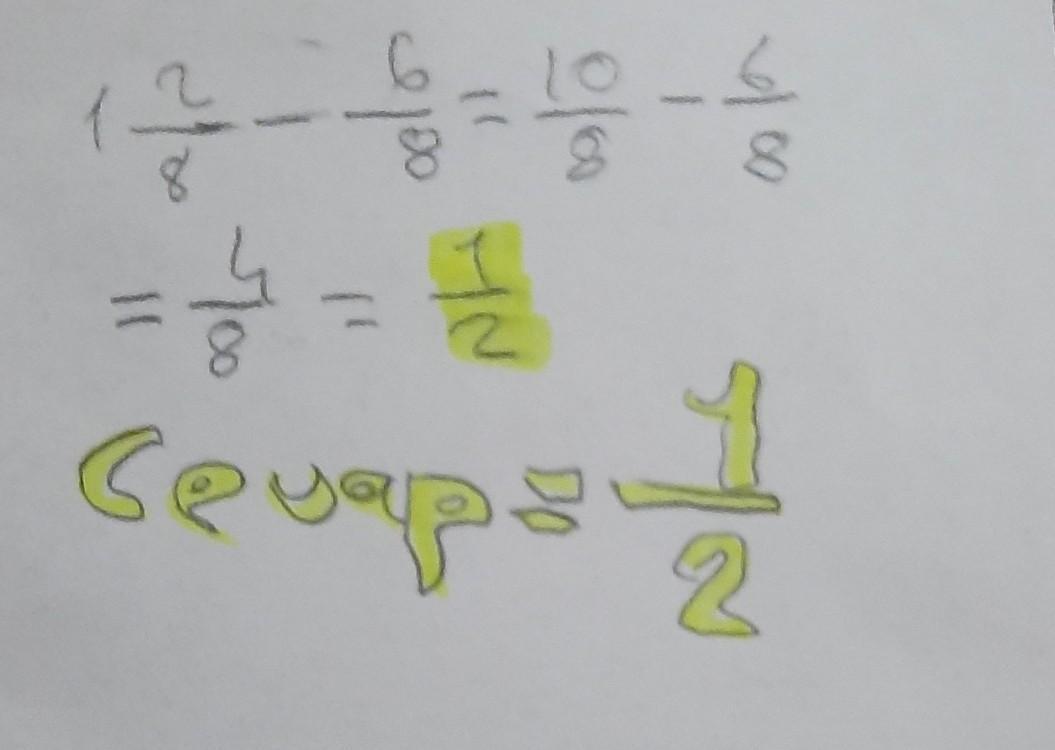 1 2/8 - 6/8 = 10/8 - 6/8
= 4/8 = 1/2
Cevap = 1/2